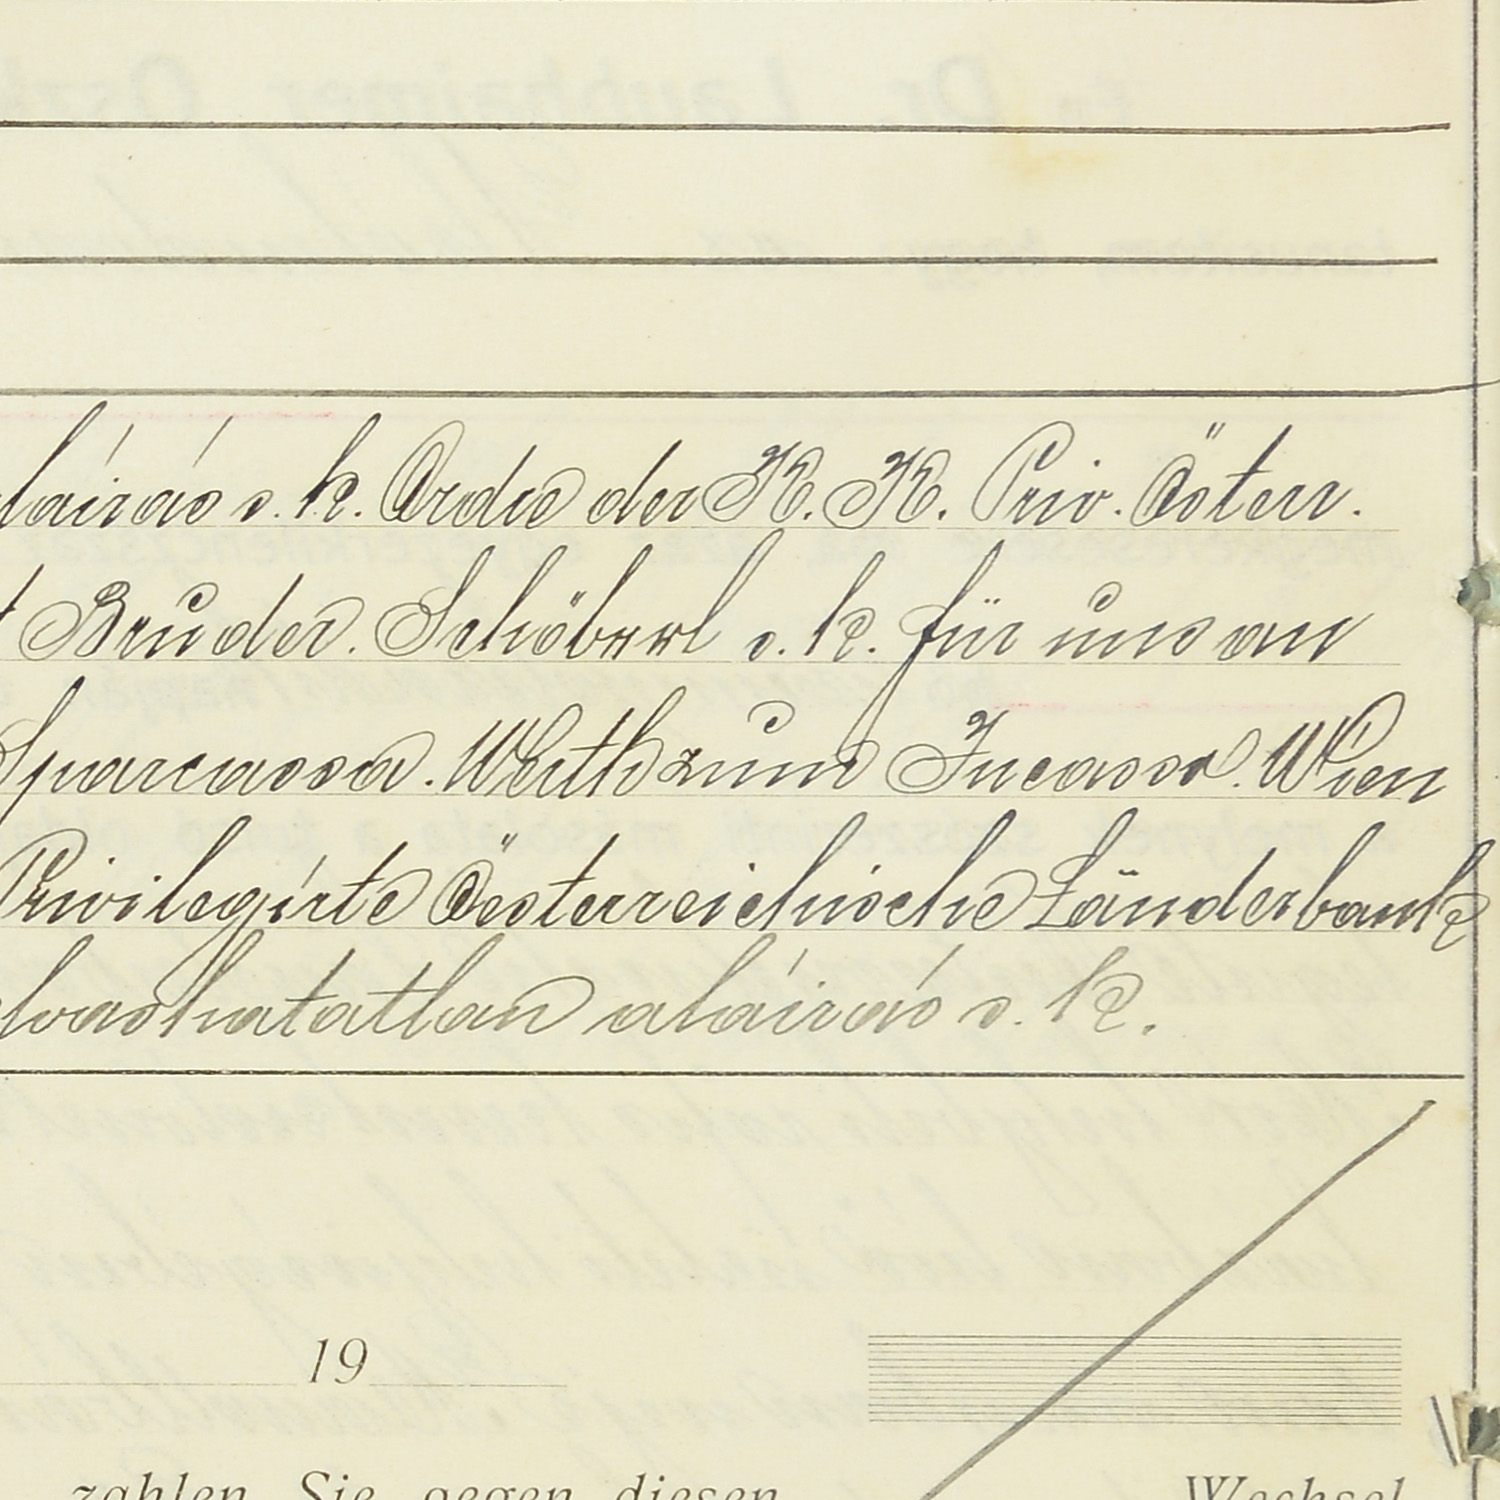 aláirás s. k. Ordre der K. K. Priv. Österr.
Bruder. Schöberl s. k. für uns an
Sparcassa. Werth zum Incasso. Wien
Privilegirte Österreichische Länderbank
olvashatatlan aláirás s. k.
19
zahlen Sie gegen diesen Wechsel